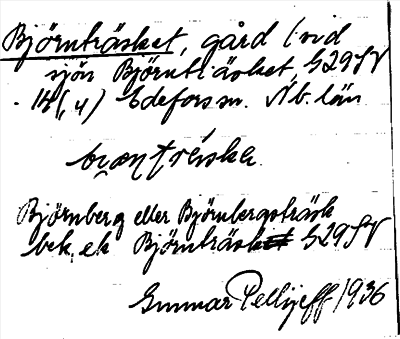 Björnträsket, gård (vid
sjön Björnträsket, S29SV
14(, 4) Edefors sn. Nb. län
Björnberg eller Björnbergsträsk
bek. ek Björnträsket S29SV
Gunnar Pellijeff 1936